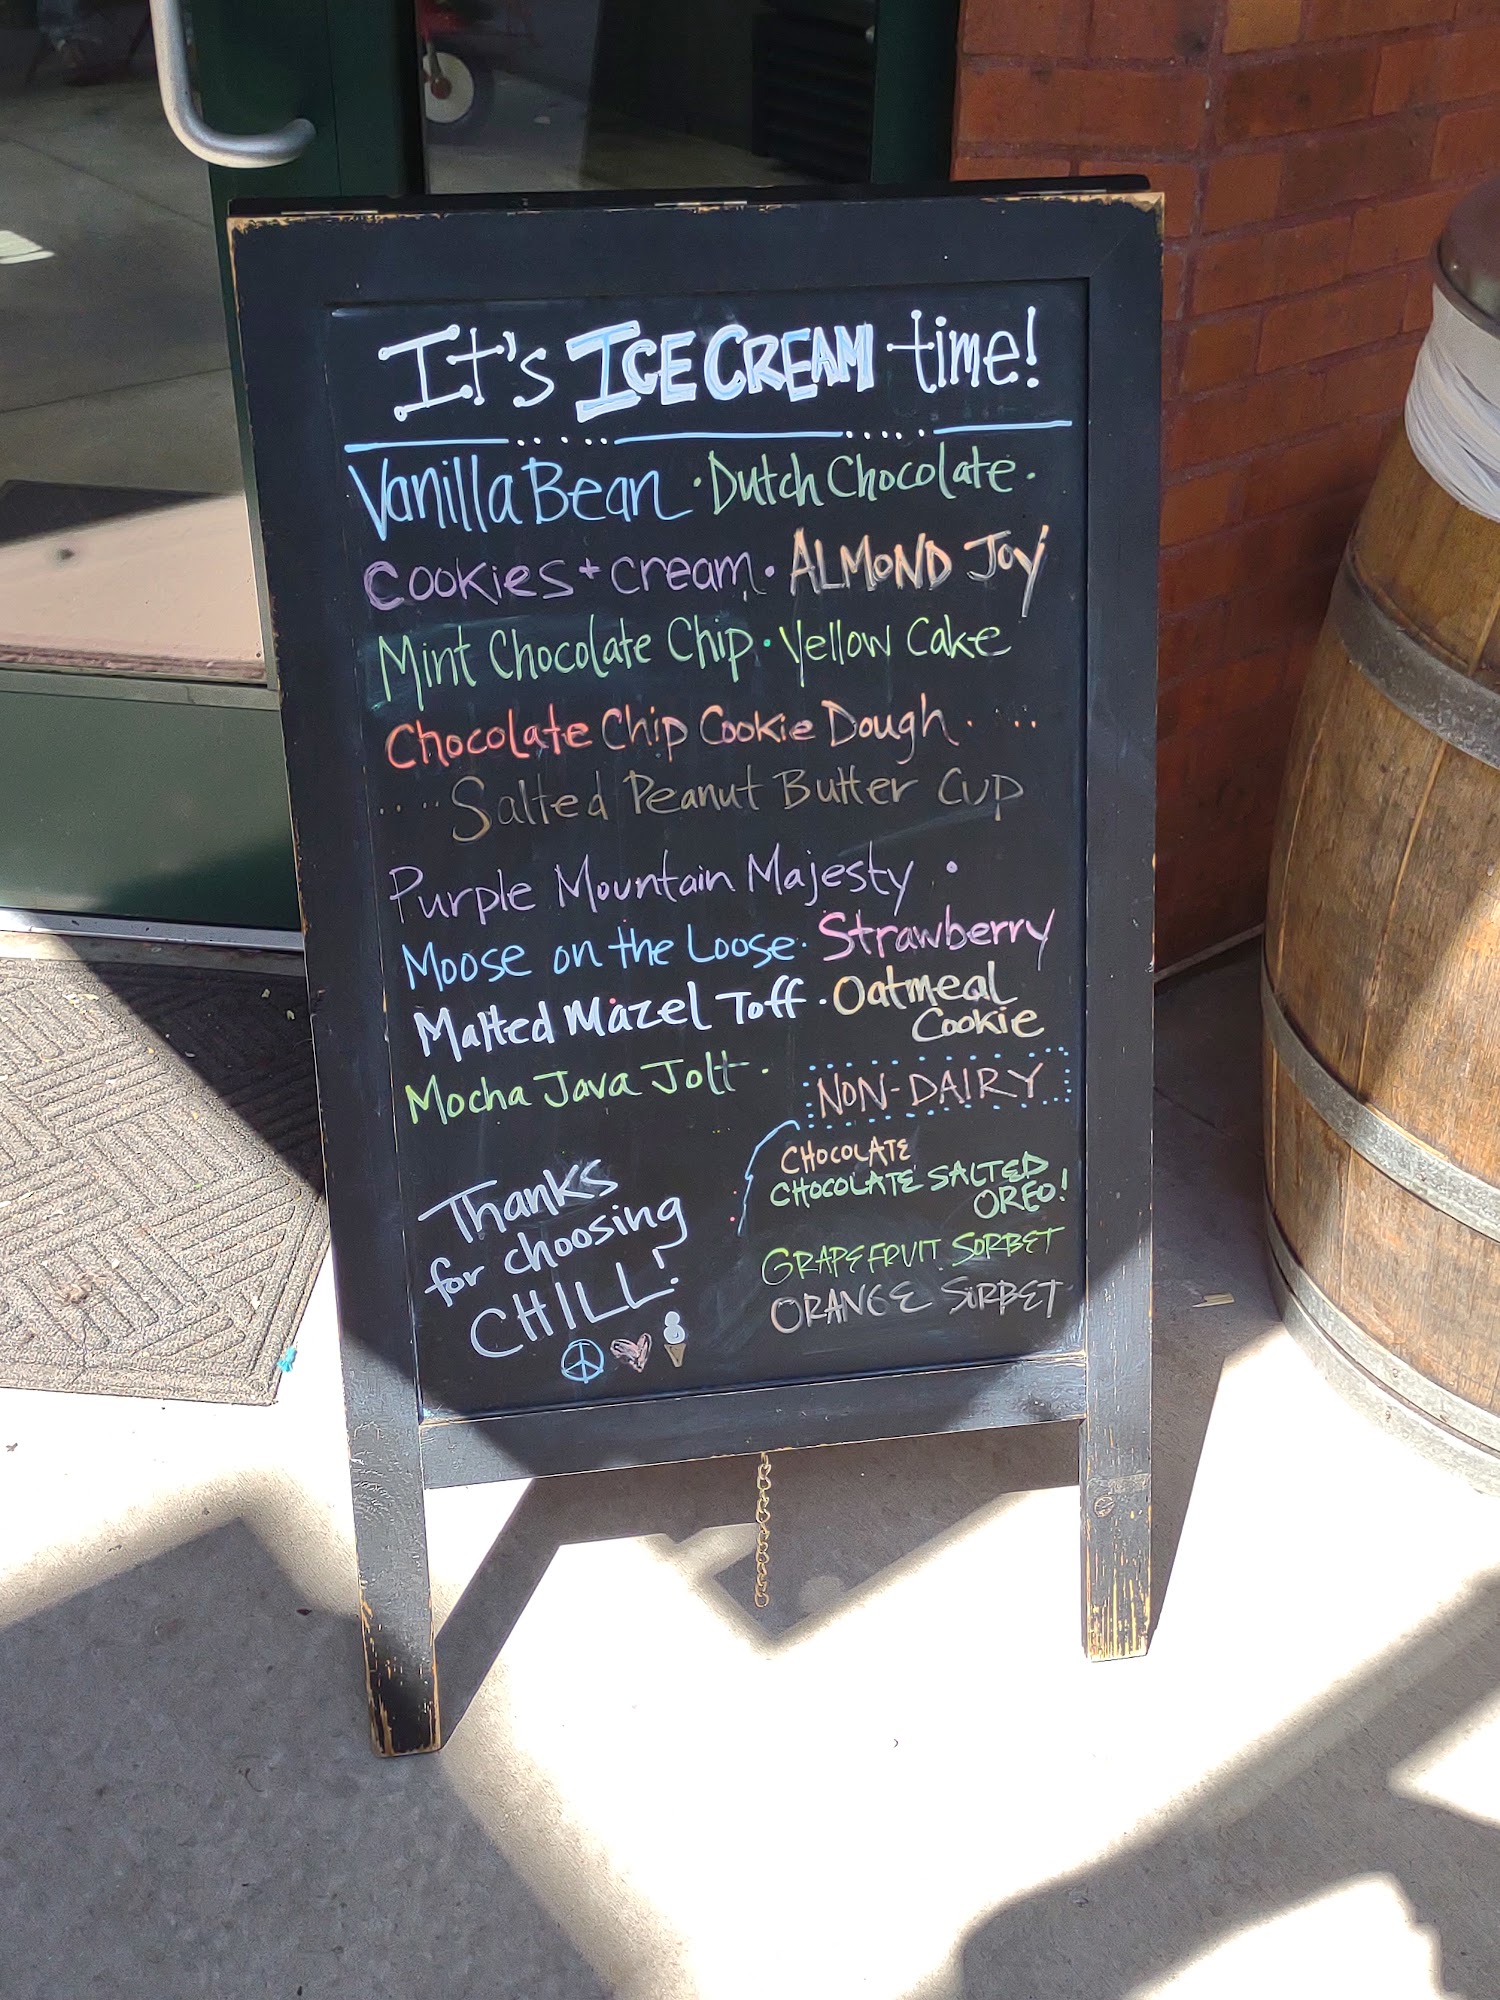 It's ICE CREAM time!
Vanilla Bean · Dutch Chocolate ·
Cookies + Cream · ALMOND JOY
Mint Chocolate Chip · Yellow Cake
Chocolate Chip Cookie Dough · ...
.... Salted Peanut Butter Cup
Purple Mountain Majesty ·
Moose on the Loose · Strawberry
Malted Mazel Toff · Oatmeal
Cookie
Mocha Java Jolt ·
NON-DAIRY
CHOCOLATE
CHOCOLATE SALTED
OREO!
GRAPEFRUIT SORBET
ORANGE SORBET
Thanks
for choosing
CHILL!